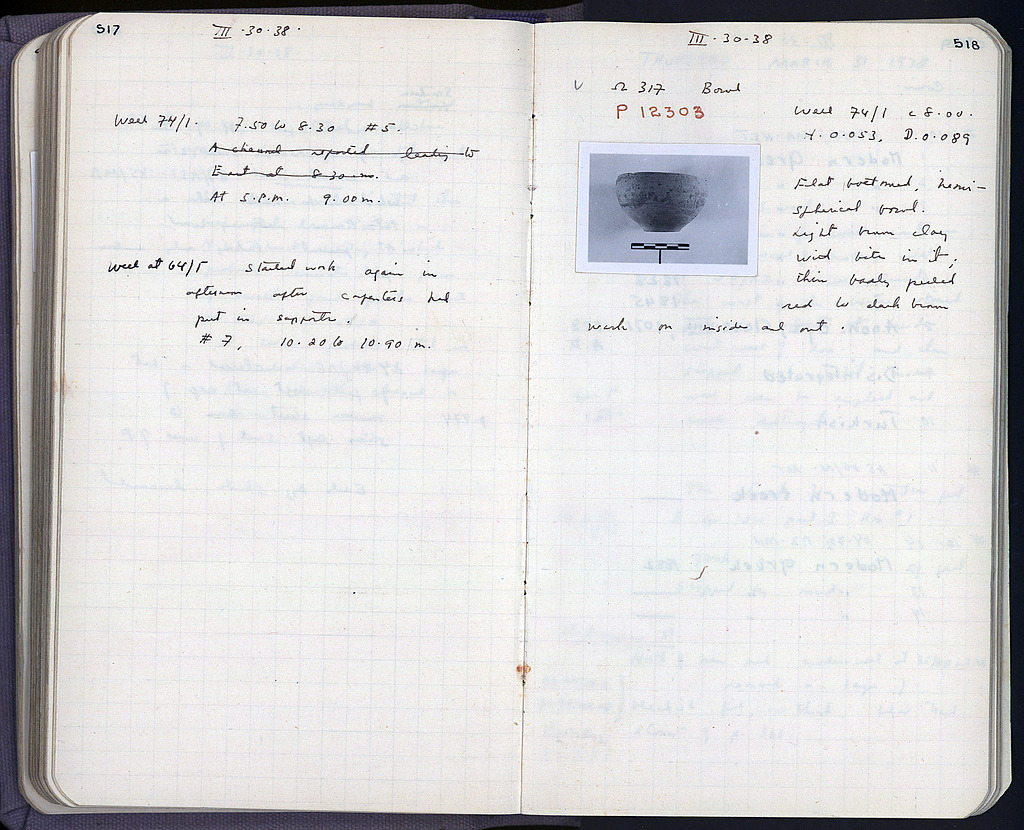 517
III · 30 · 38 ·
Well 74/1 7.50 to 8.30 #5.
A channel reported leading to
East at 8.30 m.
At 5. P.M. 9.00 m.
Well at 64/ started work again in
afternoon after carpenters had
put in supports.
# 7, 10.20 to 10.90 m.
III · 30 - 38
518
Ω 317 Bowl
P 12303
Well 74/1 c 8.00.
H. 0.053, D. 0.089
Flat bottomed, hemi-
spherical bowl.
Light brown clay
with bits in it;
thin badly peeled
red to dark brown
wash on inside and out.